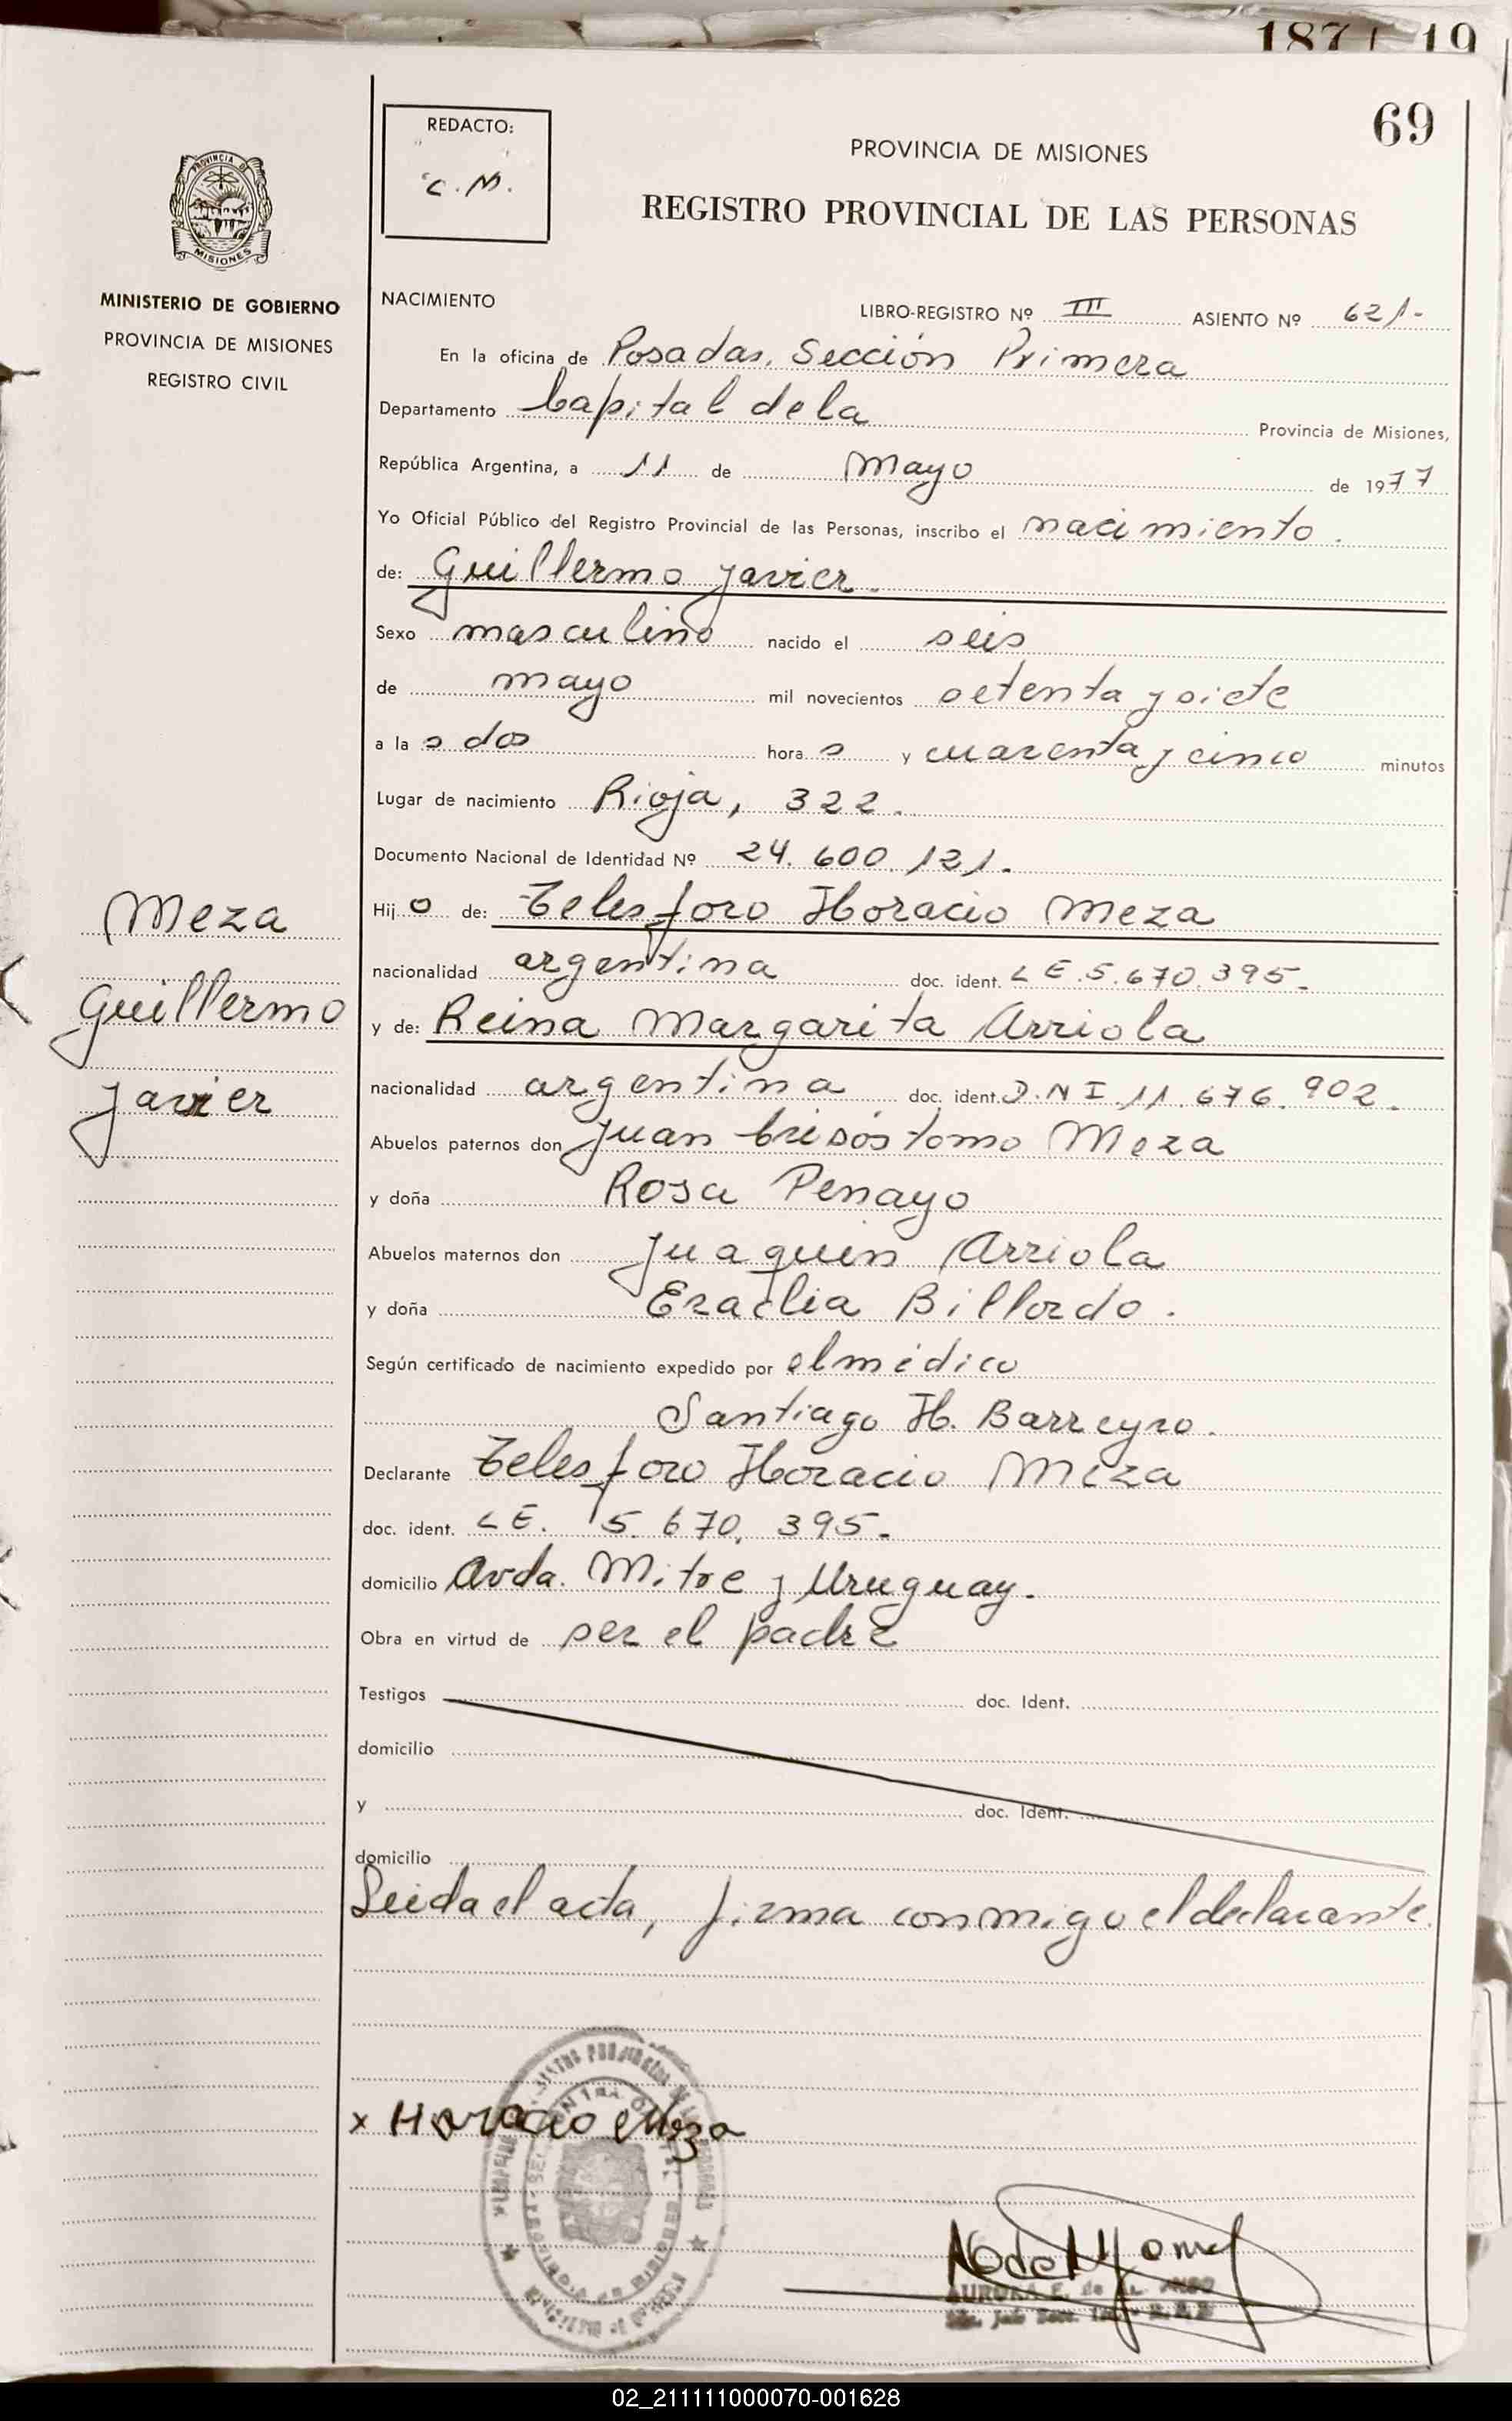 69
REDACTO:
"C.M."
PROVINCIA DE MISIONES
REGISTRO PROVINCIAL DE LAS PERSONAS
PROVINCIA DE
MISIONES
MINISTERIO DE GOBIERNO
PROVINCIA DE MISIONES
REGISTRO CIVIL
Meza
Guillermo
Javier
NACIMIENTO
LIBRO-REGISTRO Nº III ASIENTO Nº 621.-
En la oficina de Posadas, Sección Primera
Departamento Capital de la Provincia de Misiones,
República Argentina, a 11 de Mayo de 1977
Yo Oficial Público del Registro Provincial de las Personas, inscribo el nacimiento.
de: Guillermo Javier.
Sexo masculino nacido el seis
de mayo mil novecientos setenta y siete
a la s dos hora s y cuarenta y cinco minutos
Lugar de nacimiento Rioja, 322.
Documento Nacional de Identidad Nº 24.600.121.
Hij o de: Telesforo Horacio Meza
nacionalidad argentina doc. ident. L E. 5.670.395.-
y de: Reina Margarita Arriola
nacionalidad argentina doc. ident. D.N I. 11.676.902.
Abuelos paternos don Juan Crisóstomo Meza
y doña Rosa Penayo
Abuelos maternos don Juaquin Arriola
y doña Eraclia Billordo.
Según certificado de nacimiento expedido por el médico
Santiago H. Barreyro.
Declarante Telesforo Horacio Meza
doc. ident. L E. 5.670.395.-
domicilio Avda. Mitre y Uruguay.
Obra en virtud de ser el padre
Testigos doc. Ident.
domicilio
y doc. Ident.
domicilio
Leida el acta, firma conmigo el declarante.
x Horacio Meza
AURORA E. de
02_211111000070-001628